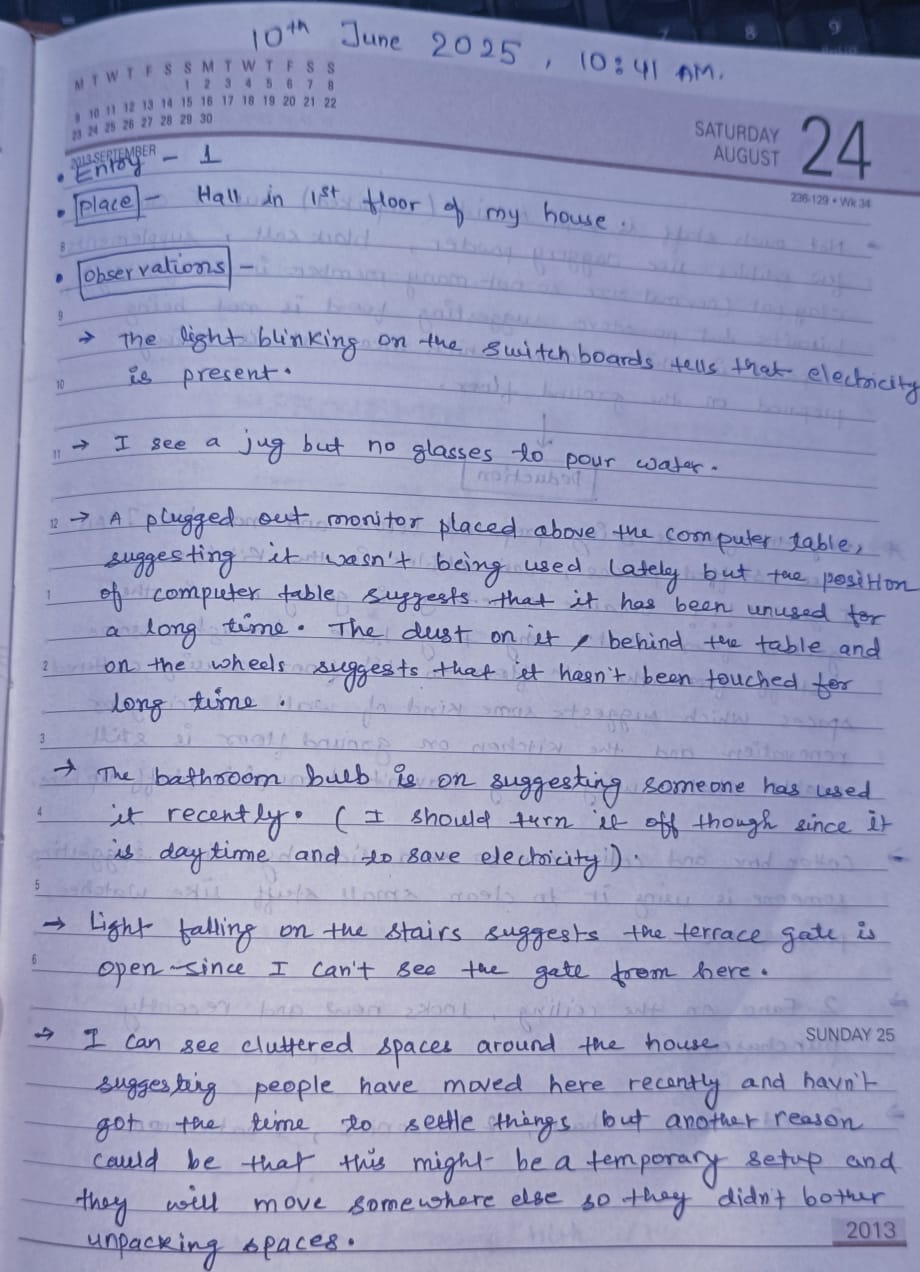 7 8 9
10th June 2025, 10:41 AM.
M T W T F S S M T W T F S S
1 2 3 4 5 6 7 8
9 10 11 12 13 14 15 16 17 18 19 20 21 22
23 24 25 26 27 28 29 30
2013 SEPTEMBER
SATURDAY
AUGUST 24
236-129 • Wk 34
• Entry - 1
• Place - Hall in 1st floor of my house.
8
• Observations -
9
→ The light blinking on the switch boards tells that electricity
10 is present.
11 → I see a jug but no glasses to pour water.
12 → A plugged out monitor placed above the computer table,
suggesting it wasn't being used lately but the position
1 of computer table suggests that it has been unused for
a long time. The dust on it, behind the table and
2 on the wheels suggests that it hasn't been touched for
long time.
3
→ The bathroom bulb is on suggesting someone has used
4 it recently. (I should turn it off though since it
is daytime and to save electricity).
5
→ Light falling on the stairs suggests the terrace gate is
6 open since I can't see the gate from here.
→ I can see cluttered spaces around the house
SUNDAY 25
suggesting people have moved here recently and havn't
got the time to settle things but another reason
could be that this might be a temporary setup and
they will move somewhere else so they didn't bother
unpacking spaces.
2013